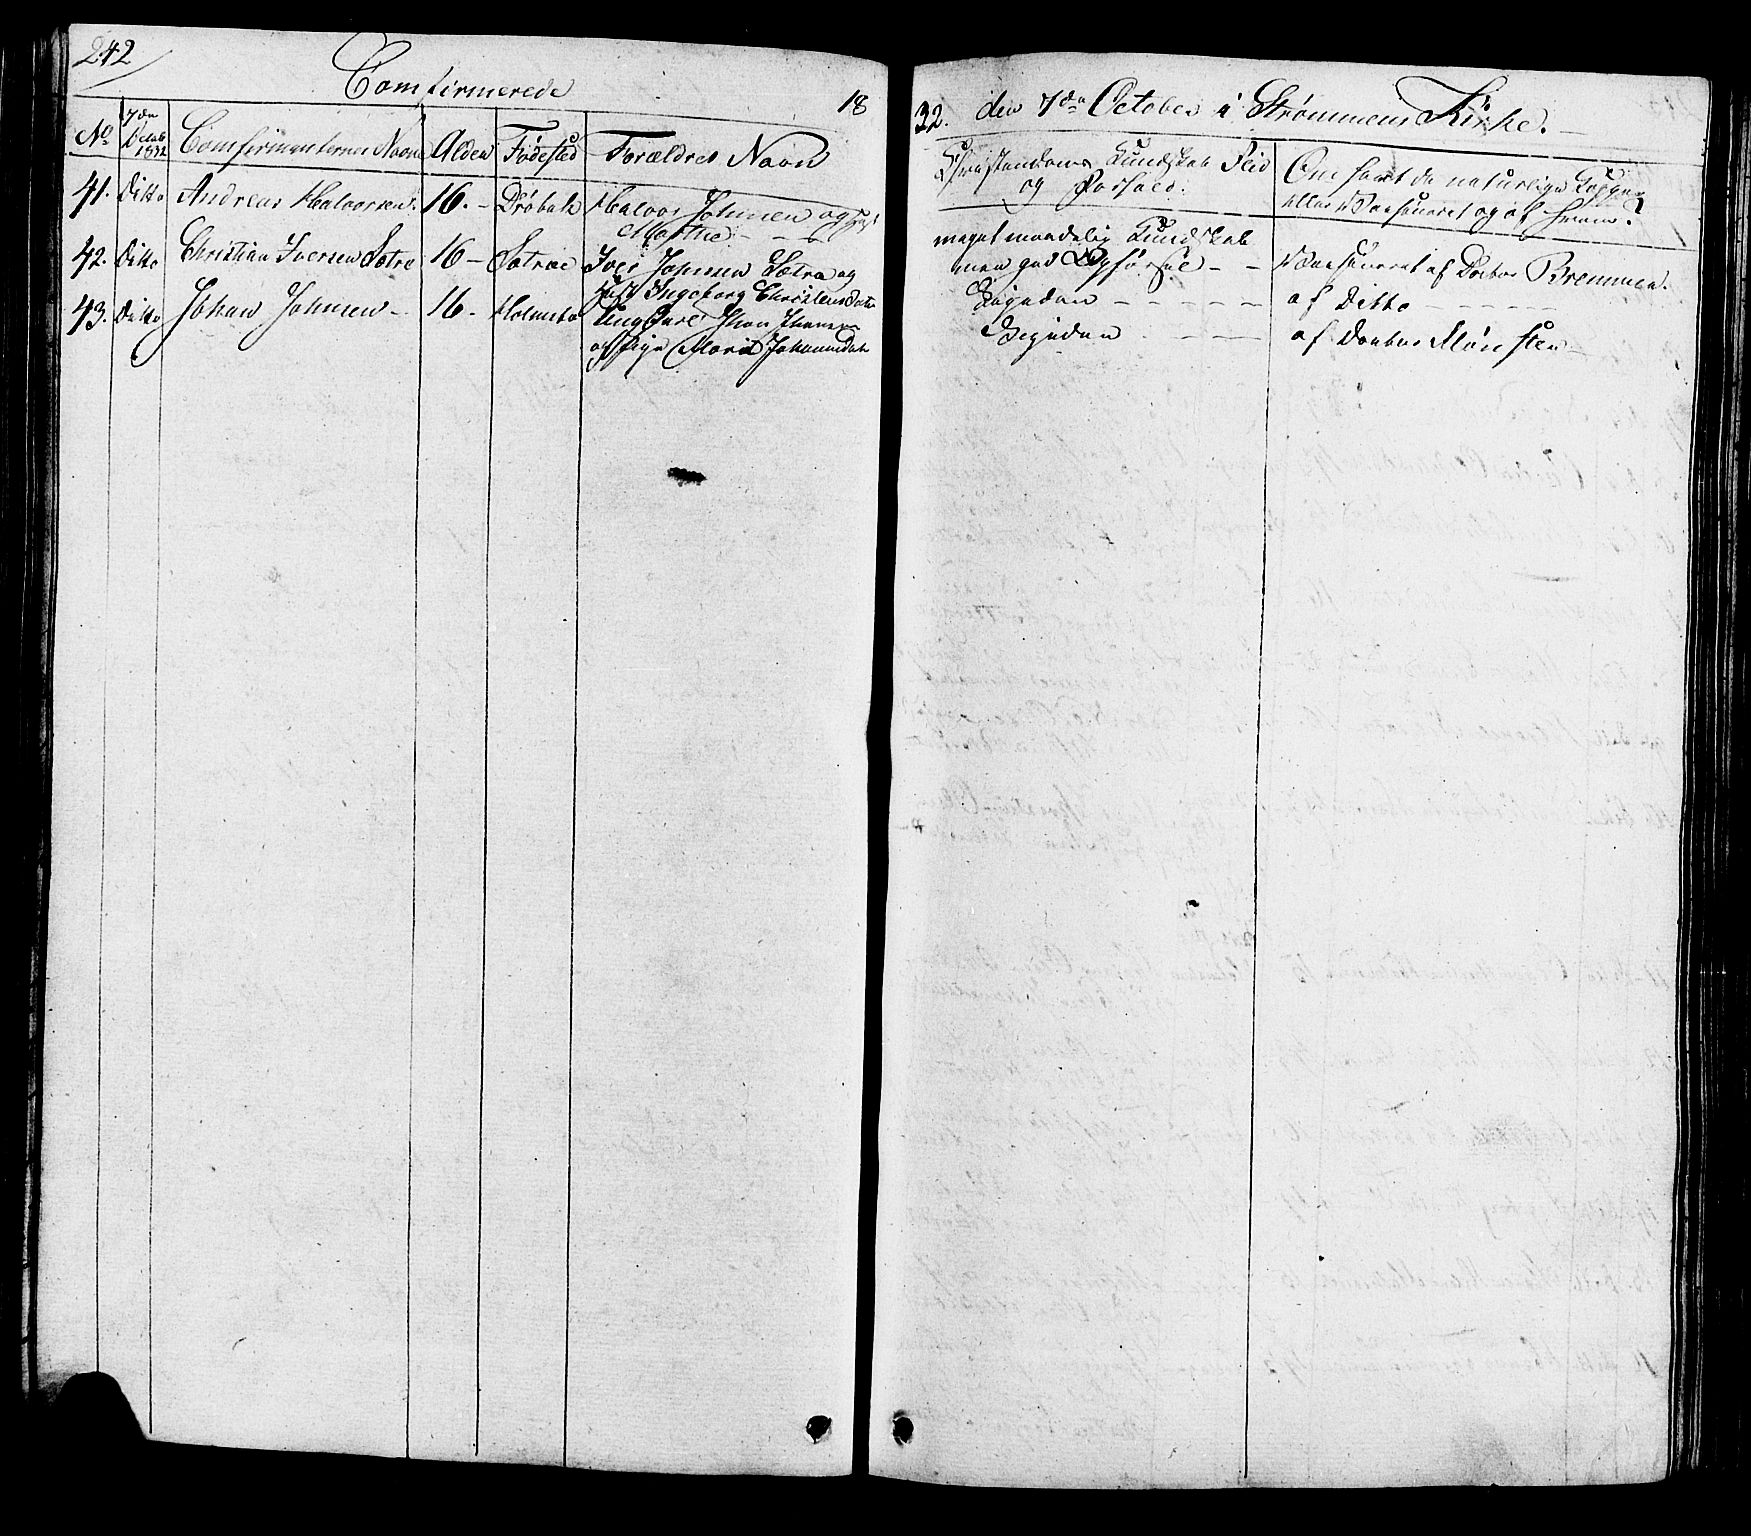 242
Comfirmerede 18
32. den 7de October i Strømmens Kirke.
No
7de
Octob
1832
Comfirmenternes Navne
Alder
Fødested
Forældres Navn
Christendoms Kundskab Flid
og Forhold.
Om havt de naturlige Kopper
eller Vacsineret og af hvem?
41. Ditto Andreas Halvorsen. 16. - Drøbak Halvor Johnsen og
Marthe
maget maadelig Kundskab
men god Opførsel - - Vacsineret af Doctor Bremmer.
42. Ditto Christian Iversen Sætre 16 - Sætrae Iver Johnsen Sætra og
Ingeborg Christensdatr
Ligeden - - - - - af Ditto - - - -
43. Ditto Johan Johnsen - 16 - Holmsbo
og Pige Maria Johannesdatr
Ligeden - - - - af Doctor Mønster